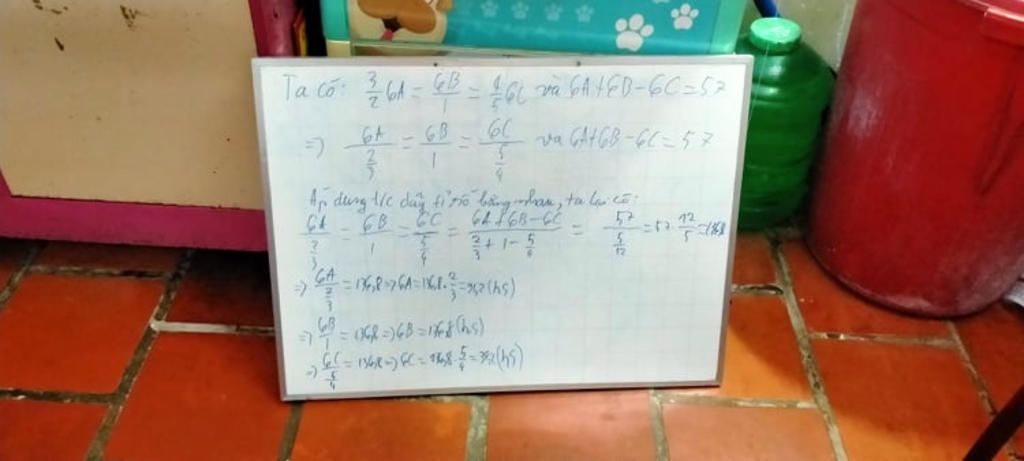 Ta có: 3/2 6A = 6B/1 = 4/5 6C và 6A+6B-6C=57
=> 6A/(2/3) = 6B/1 = 6C/(5/4) và 6A+6B-6C=57
Áp dụng t/c dãy tỉ số bằng nhau, ta lại có:
6A/(2/3) = 6B/1 = 6C/(5/4) = (6A+6B-6C)/(2/3+1-5/4) = 57/(5/12) = 57.12/5 = 136,8
=> 6A/(2/3) = 136,8 => 6A = 136,8.2/3 = (hs)
=> 6B/1 = 136,8 => 6B = 136,8 (hs)
=> 6C/(5/4) = 136,8 => 6C = 136,8.5/4 = (hs)